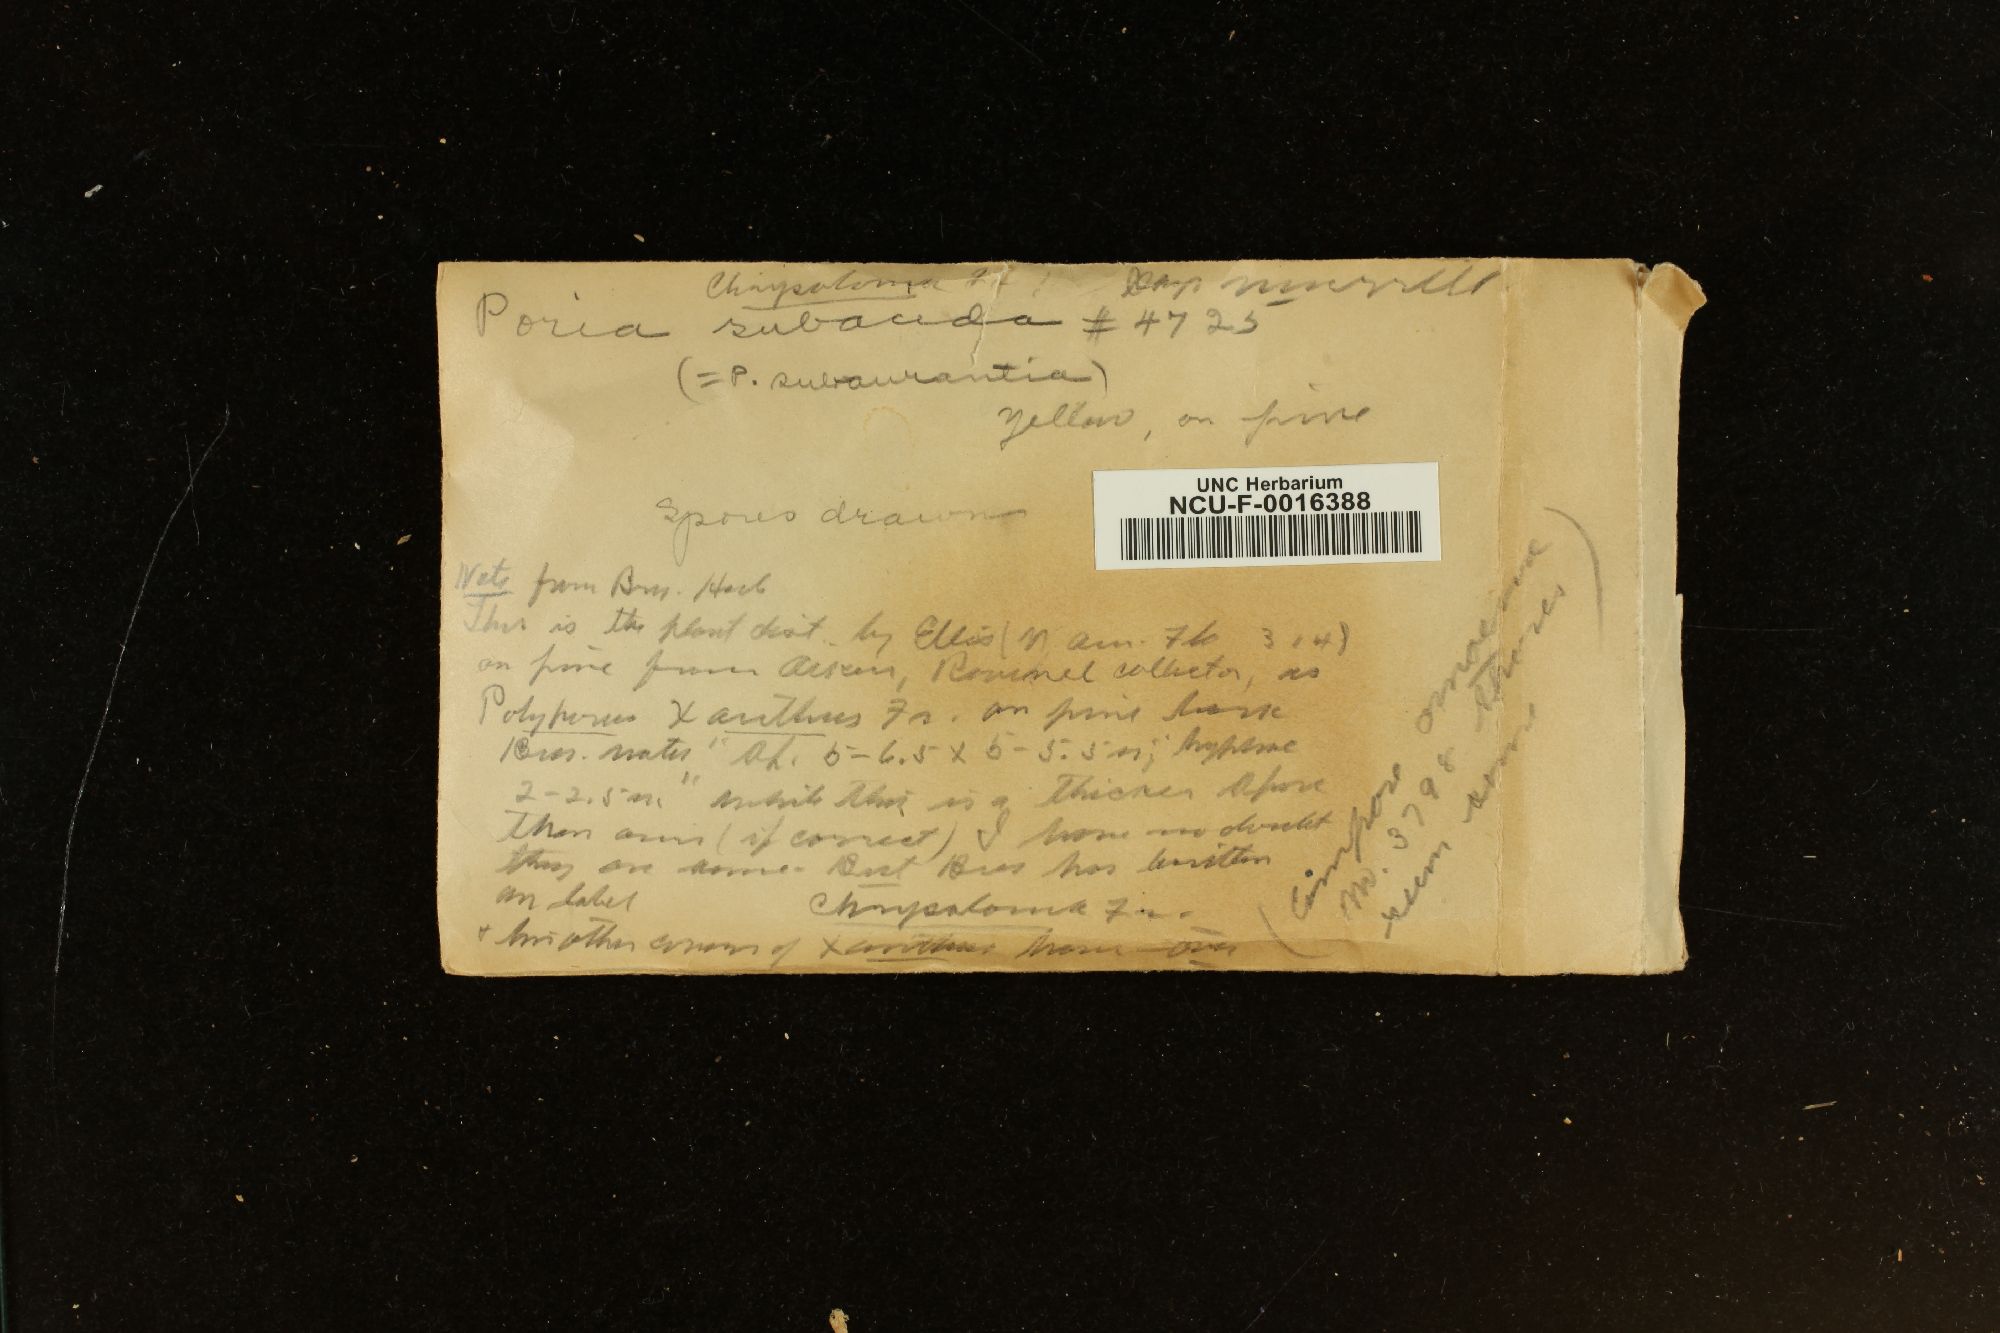 Chrysoloma Fr. says Murrill
Poria subacida # 4725
(=P. subaurantia)
Yellow, on pine
UNC Herbarium
NCU-F-0016388
Spores drawn
Note from Bres. Herb
This is the plant dist. by Ellis (N. Am. F 314)
on pine from Aiken, Ravenel collector, as
Polyporus Xanthus Fr. on pine bark
Bres. notes "Sp. 5-6.5 x 5-5.5 m; hyphae
2-2.5 m." while this is a thicker spore
than ours (if correct) I have no doubt
they are same. But Bres has written
on label Chrysoloma Fr.
& his other covers of xanthus have
(Compare
No. 3798
seem same)